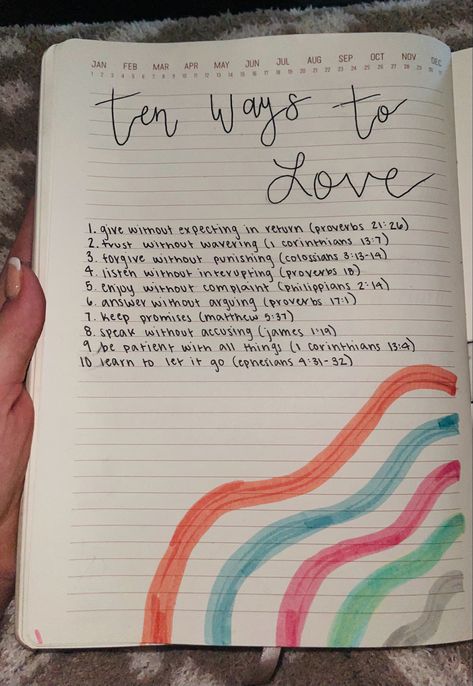 JAN FEB MAR APR MAY JUN JUL AUG SEP OCT NOV DEC
1 2 3 4 5 6 7 8 9 10 11 12 13 14 15 16 17 18 19 20 21 22 23 24 25 26 27 28 29 30 31
Ten Ways to
Love
1. give without expecting in return (proverbs 21:26)
2. trust without wavering (1 corinthians 13:7)
3. forgive without punishing (colossians 3:13-14)
4. listen without interupting (proverbs 18)
5. enjoy without complaint (philippians 2:14)
6. answer without arguing (proverbs 17:1)
7. keep promises (matthew 5:37)
8. speak without accusing (james 1:19)
9 be patient with all things (1 corinthians 13:4)
10 learn to let it go (ephesians 4:31-32)